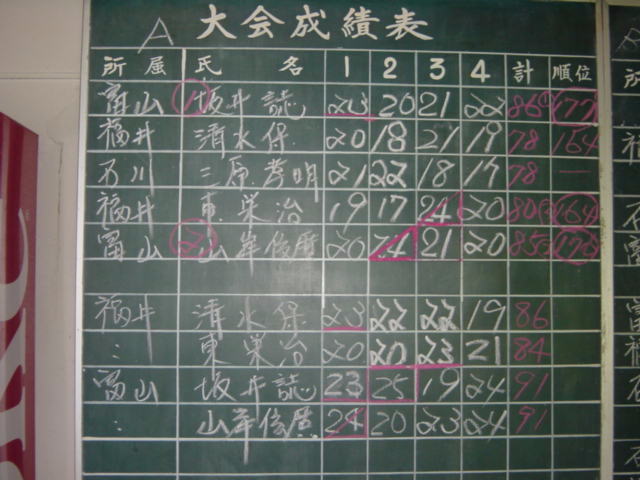 A 大会成績表
所属 氏名 1 2 3 4 計 順位
富山 ① 坂井誌 23 20 21 22 86 177
福井 清水保 20 18 21 19 78 164
石川 三原孝明 21 22 18 17 78 —
福井 東栄治 19 17 24 20 80 164
富山 ② 山岸俊暦 20 24 21 20 85 176
福井 清水保 23 22 22 19 86
: 東栄治 20 20 23 21 84
富山 坂井誌 23 25 19 24 91
: 山岸俊廣 24 20 23 24 91